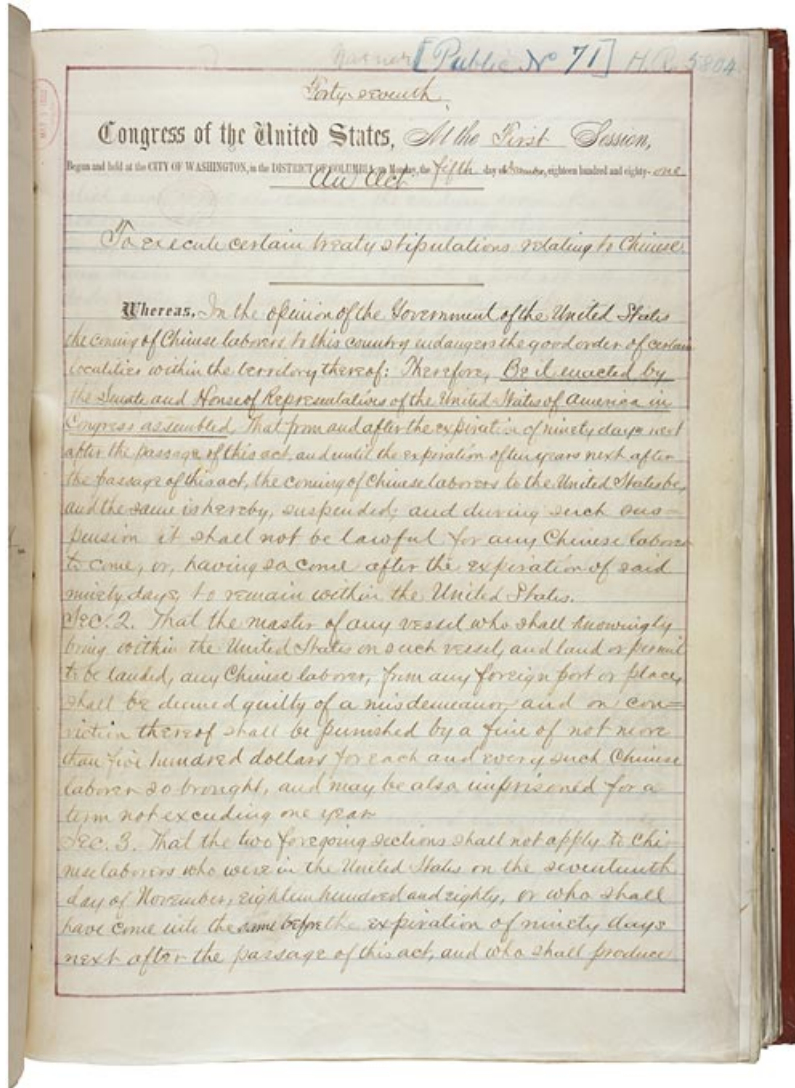 [Public No 71] H.R. 5804
Forty-seventh
Congress of the United States, At the First Session,
Begun and held at the CITY OF WASHINGTON, in the DISTRICT OF COLUMBIA, on Monday, the fifth day of December, eighteen hundred and eighty-one
An Act
To execute certain treaty stipulations relating to Chinese.
Whereas, In the opinion of the Government of the United States
the coming of Chinese laborers to this country endangers the good order of certain
localities within the territory thereof: Therefore, Be it enacted by
the Senate and House of Representatives of the United States of America in
Congress assembled, That from and after the expiration of ninety days next
after the passage of this act, and until the expiration of ten years next after
the passage of this act, the coming of Chinese laborers to the United States be,
and the same is hereby, suspended; and during such sus-
pension it shall not be lawful for any Chinese laborer
to come, or, having so come after the expiration of said
ninety days, to remain within the United States.
Sec. 2. That the master of any vessel who shall knowingly
bring within the United States on such vessel, and land or permit
to be landed, any Chinese laborer, from any foreign port or place,
shall be deemed guilty of a misdemeanor, and on con=
viction thereof shall be punished by a fine of not more
than five hundred dollars for each and every such Chinese
laborer so brought, and may be also imprisoned for a
term not exceeding one year.
Sec. 3. That the two foregoing sections shall not apply to Chi-
nese laborers who were in the United States on the seventeenth
day of November, eighteen hundred and eighty, or who shall
have come into the same before the expiration of ninety days
next after the passage of this act, and who shall produce